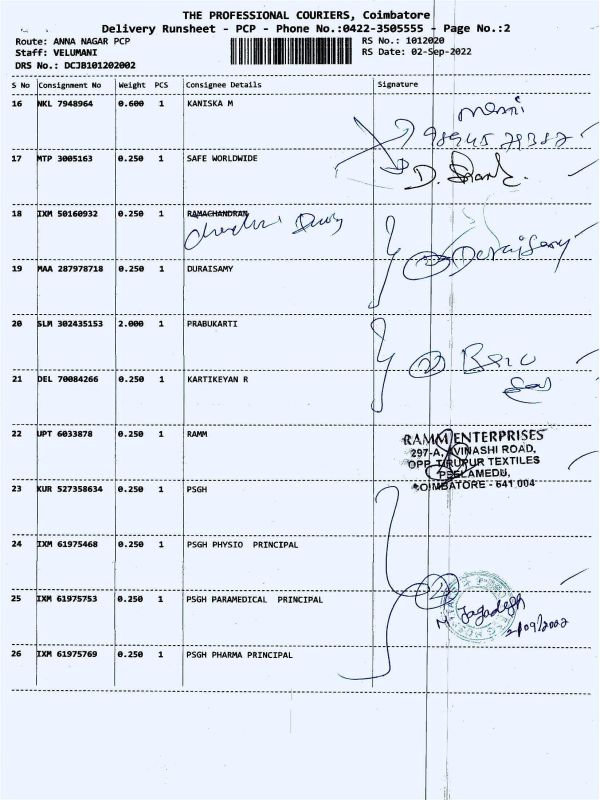 THE PROFESSIONAL COURIERS, Coimbatore
Delivery Runsheet - PCP - Phone No.:0422-3505555 - Page No.:2
Route: ANNA NAGAR PCP RS No.: 1012020
Staff: VELUMANI RS Date: 02-Sep-2022
DRS No.: DCJB101202002
S No Consignment No Weight PCS Consignee Details Signature
16 NKL 7948964 0.600 1 KANISKA M
17 MTP 3005163 0.250 1 SAFE WORLDWIDE
18 IXM 50160932 0.250 1 RAMACHANDRAN
19 MAA 287978718 0.250 1 DURAISAMY
Duraisamy
20 SLM 302435153 2.000 1 PRABUKARTI
21 DEL 70084266 0.250 1 KARTIKEYAN R
22 UPT 6033878 0.250 1 RAMM
RAMM ENTERPRISES
297-A, AVINASHI ROAD,
OPP. TIRUPUR TEXTILES
PEELAMEDU,
COIMBATORE - 641 004
23 KUR 527358634 0.250 1 PSGH
24 IXM 61975468 0.250 1 PSGH PHYSIO PRINCIPAL
25 IXM 61975753 0.250 1 PSGH PARAMEDICAL PRINCIPAL
Jagadesh
26 IXM 61975769 0.250 1 PSGH PHARMA PRINCIPAL